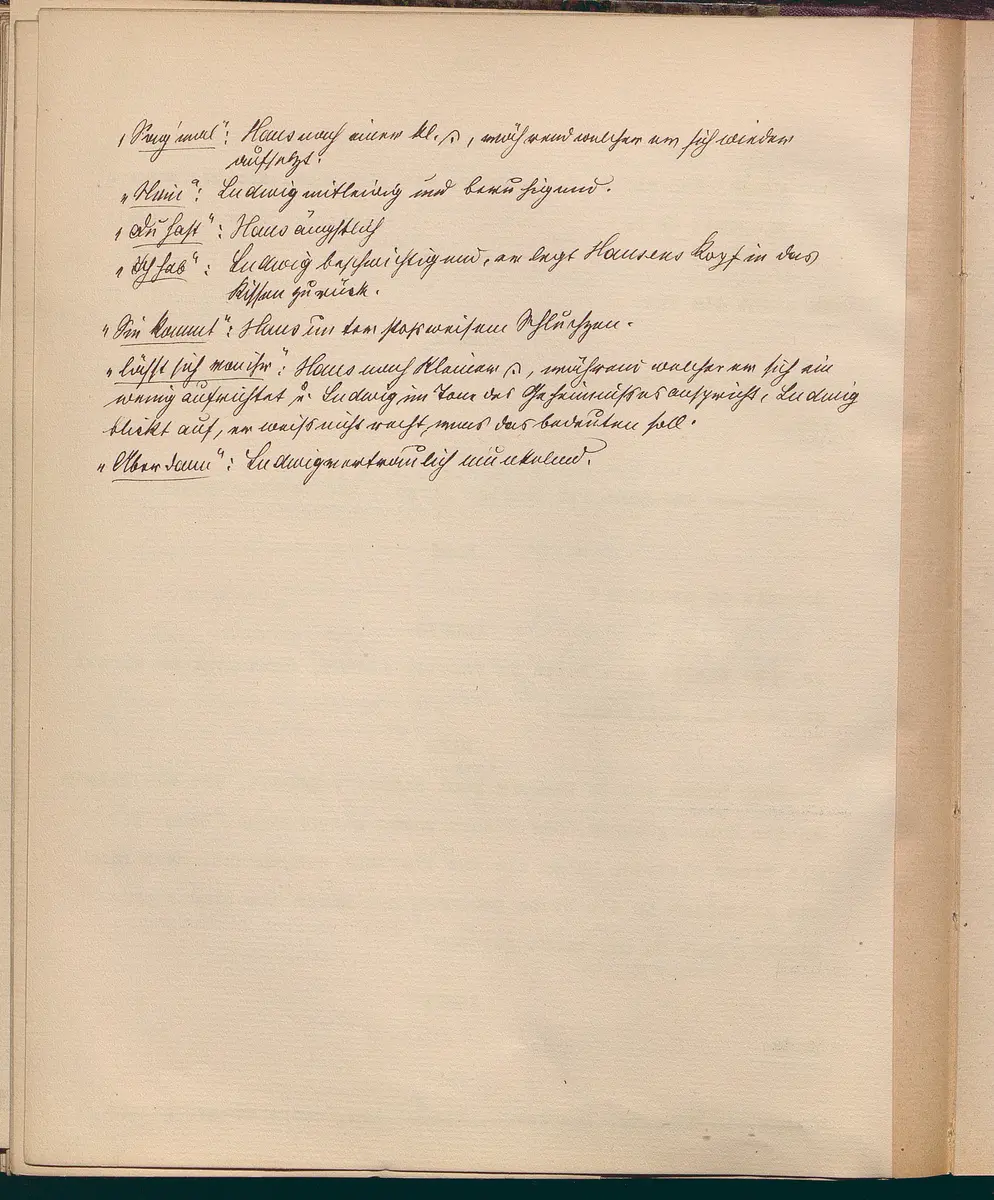 „Sag' mal": Hans nach einer kl. , während welcher er sich wieder
aufsetzt.
„Nein": Ludwig mitleidig und beruhigend.
„Du hast": Hans ängstlich
„Ich hab": Ludwig beschwichtigend, er legt Hansens Kopf in das
Kissen zurück.
„Sie kommt": Hans unter stossweisem Schluchzen.
„lässt sich von ihr": Hans nach kleiner , während welcher er sich ein
wenig aufrichtet u. Ludwig im Tone des Geheimnisses anspricht, Ludwig
blickt auf, er weiss nicht recht, was das bedeuten soll.
„Aber dann": Ludwig vertraulich munkelnd.